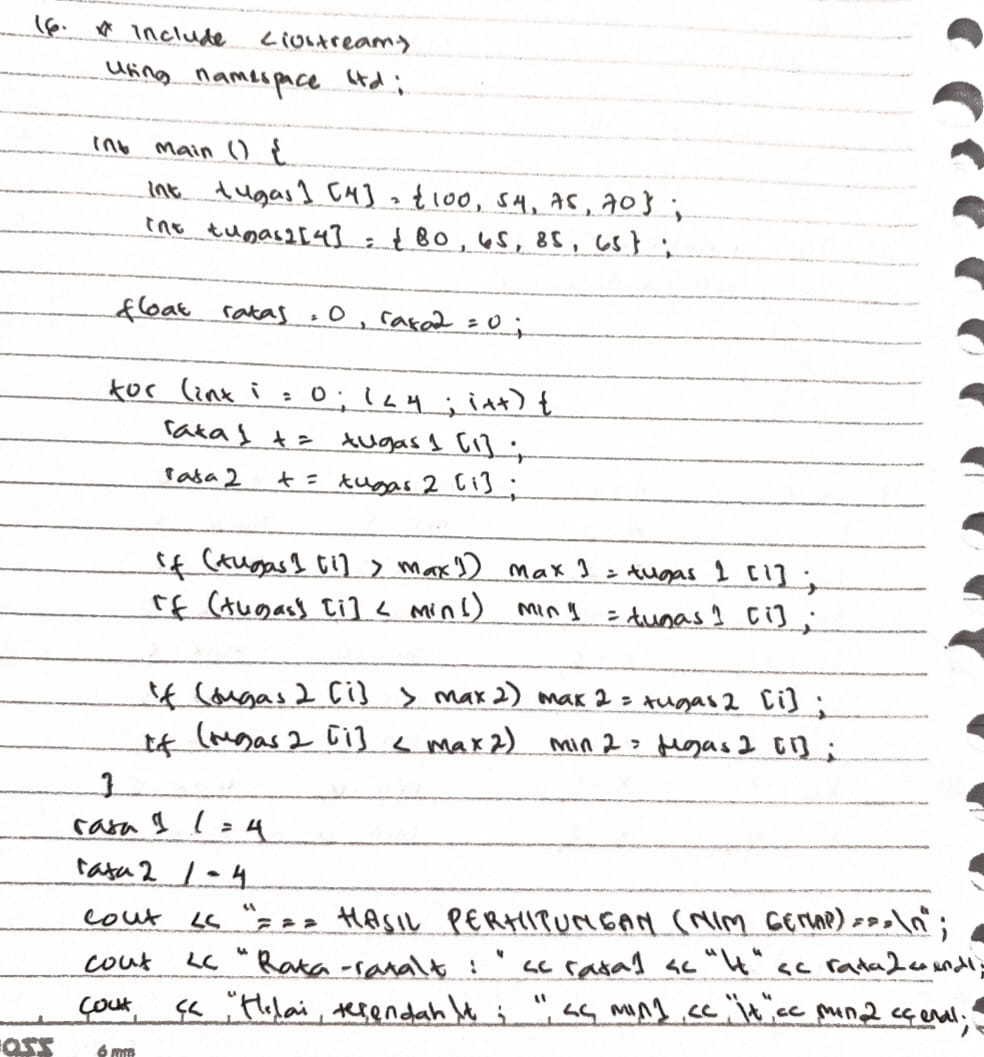 16. # include <iostream>
using namespace std;
int main () {
int tugas1 [4] = {100, 54, 75, 70} ;
int tugas2[4] = { 80, 65, 85, 65} ;
float rata1 = 0, rata2 = 0 ;
for (int i = 0 ; i < 4 ; i++) {
rata1 += tugas1 [i] ;
rata2 += tugas2 [i] ;
if (tugas1 [i] > max1) max1 = tugas1 [i] ;
if (tugas1 [i] < min1) min1 = tugas1 [i] ;
if (tugas2 [i] > max2) max2 = tugas2 [i] ;
if (tugas2 [i] < max2) min2 = tugas2 [i] ;
}
rata1 /= 4
rata2 /= 4
cout << "=== HASIL PERHITUNGAN (NIM GENAP) ===\n" ;
cout << "Rata-rata\t : " << rata1 << "\t" << rata2 << endl;
cout << "Nilai terendah\t : " << min1 << "\t" << min2 << endl;
6 mm